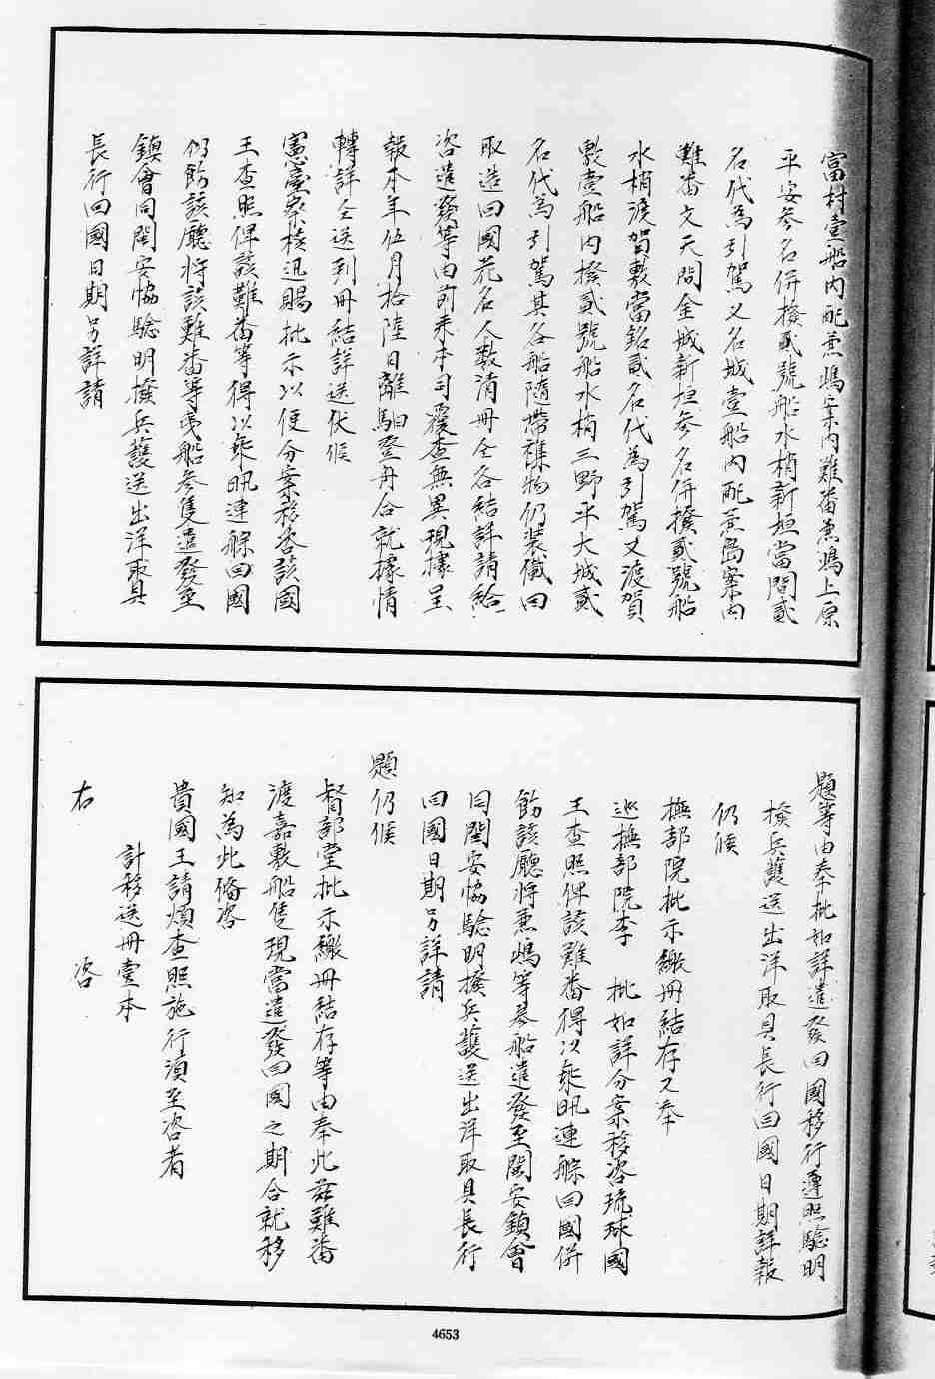 富村壹船內配慈嶋案內難畨慈嶋上原
平安叁名併撥貳號船水梢新垣當間貳
名代為引駕又名城壹船內配慈島案內
難畨文天問金城新垣叁名併撥貳號船
水梢渡賀敷當銘貳名代為引駕又渡賀
敷壹船內撥貳號船水梢三野平大城貳
名代為引駕其各船隨帶襍物仍裝儎回
取造回國花名人数清冊仝各結詳請給
咨遣發等由前来本司覆查無異現據呈
報本年伍月拾陸日離馹登舟合就據情
轉詳仝送到冊結詳送伏候
憲臺察核迅賜批示以便分案移咨該國
王查照俾該難畨等得以乘汛連䑸回國
仍飭該廳将該難畨等夷船叁隻遣發至
鎮會同閩安協騐明撥兵護送出洋取具
長行回國日期另詳請
題等由奉批如詳遣發回國移行遵照騐明
撥兵護送出洋取具長行回國日期詳報
仍候
撫部院批示繳冊結存又奉
巡撫部院李 批如詳分案移咨琉球國
王查照俾該難畨得以乘汛連䑸回國併
飭該廳将慈嶋等叁船遣發至閩安鎮會
同閩安協騐明撥兵護送出洋取具長行
回國日期另詳請
題仍候
督部堂批示繳冊結存等由奉此兹難畨
渡嘉敷船隻現當遣發回國之期合就移
知為此備咨
貴國王請煩查照施行須至咨者
計移送冊壹本
右 咨
4653